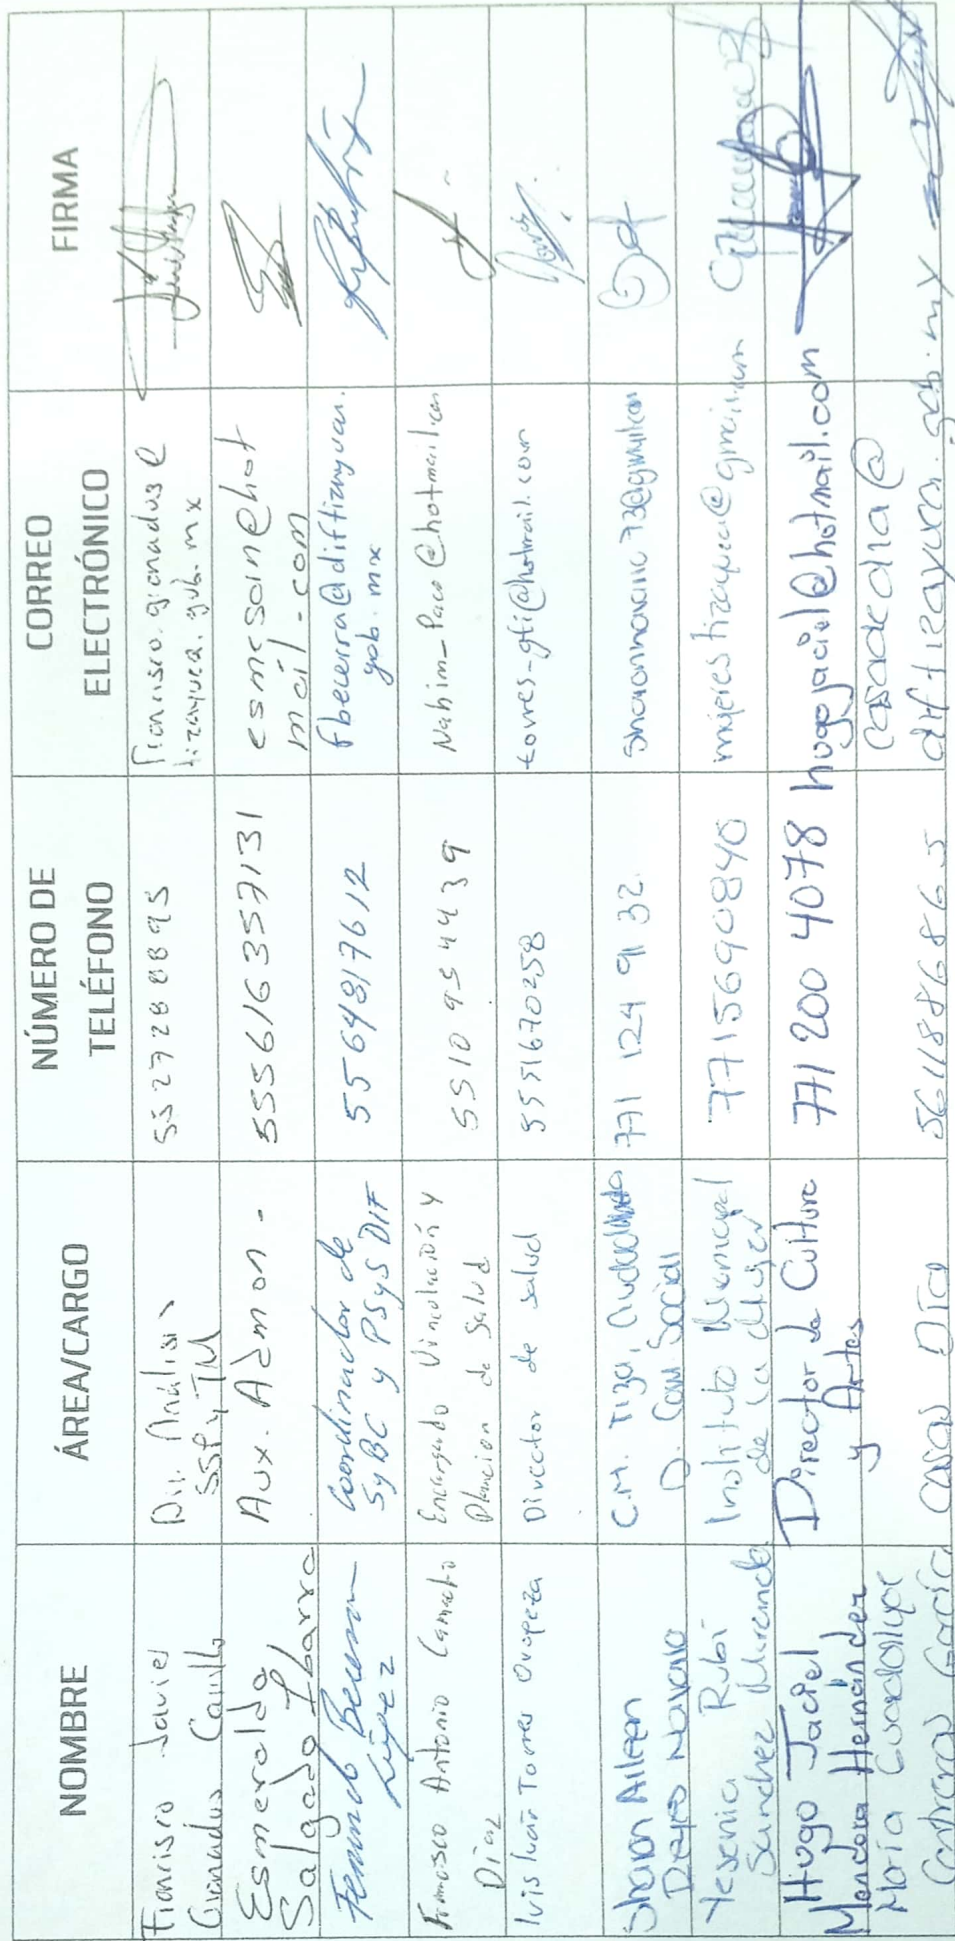 NOMBRE ÁREA/CARGO NÚMERO DE TELÉFONO CORREO ELECTRÓNICO FIRMA
Francisco Javier
Granados Carrillo
Dir. Análisis
SSP y TM
55 2728 8895
francisco.granados@
tizayuca.gob.mx
Esmeralda
Salgado Ybarra
Aux. Admon.
555616357131
esmesain@hot
mail.com
Fernando Becerra
López
Coordinador de
SyBC y PSyS DIF
5564817612
fbecerra@diftizayuca.
gob.mx
Francisco Antonio Camacho
Díaz
Encargado Vinculación y
Planeacion de Salud
5510954439
Nahim_Paco@hotmail.com
luis Iván Torres Oropeza
Director de Salud
5551670258
torres-gti@hotmail.com
Sharon Aileen
Reyes Navarro
C.M. Tiza,
D. Com Social
771 124 91 32
Yesenia Rubí
Sanchez Miranda
Instituto Municipal
de la Mujer
7715690840
mujerestizayuca@gmail.com
Hugo Jaciel
Mendoza Hernández
Director de Cultura
y Artes
771 200 4078
hugojaciel@hotmail.com
María Guadalupe
Contreras García
Casas Día
5611886865
casadedia@
diftizayuca.gob.mx